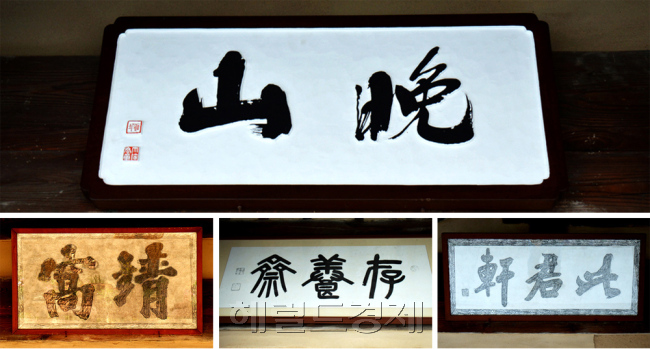 晩山
靖窩
存養齋
此君軒
헤럴드경제